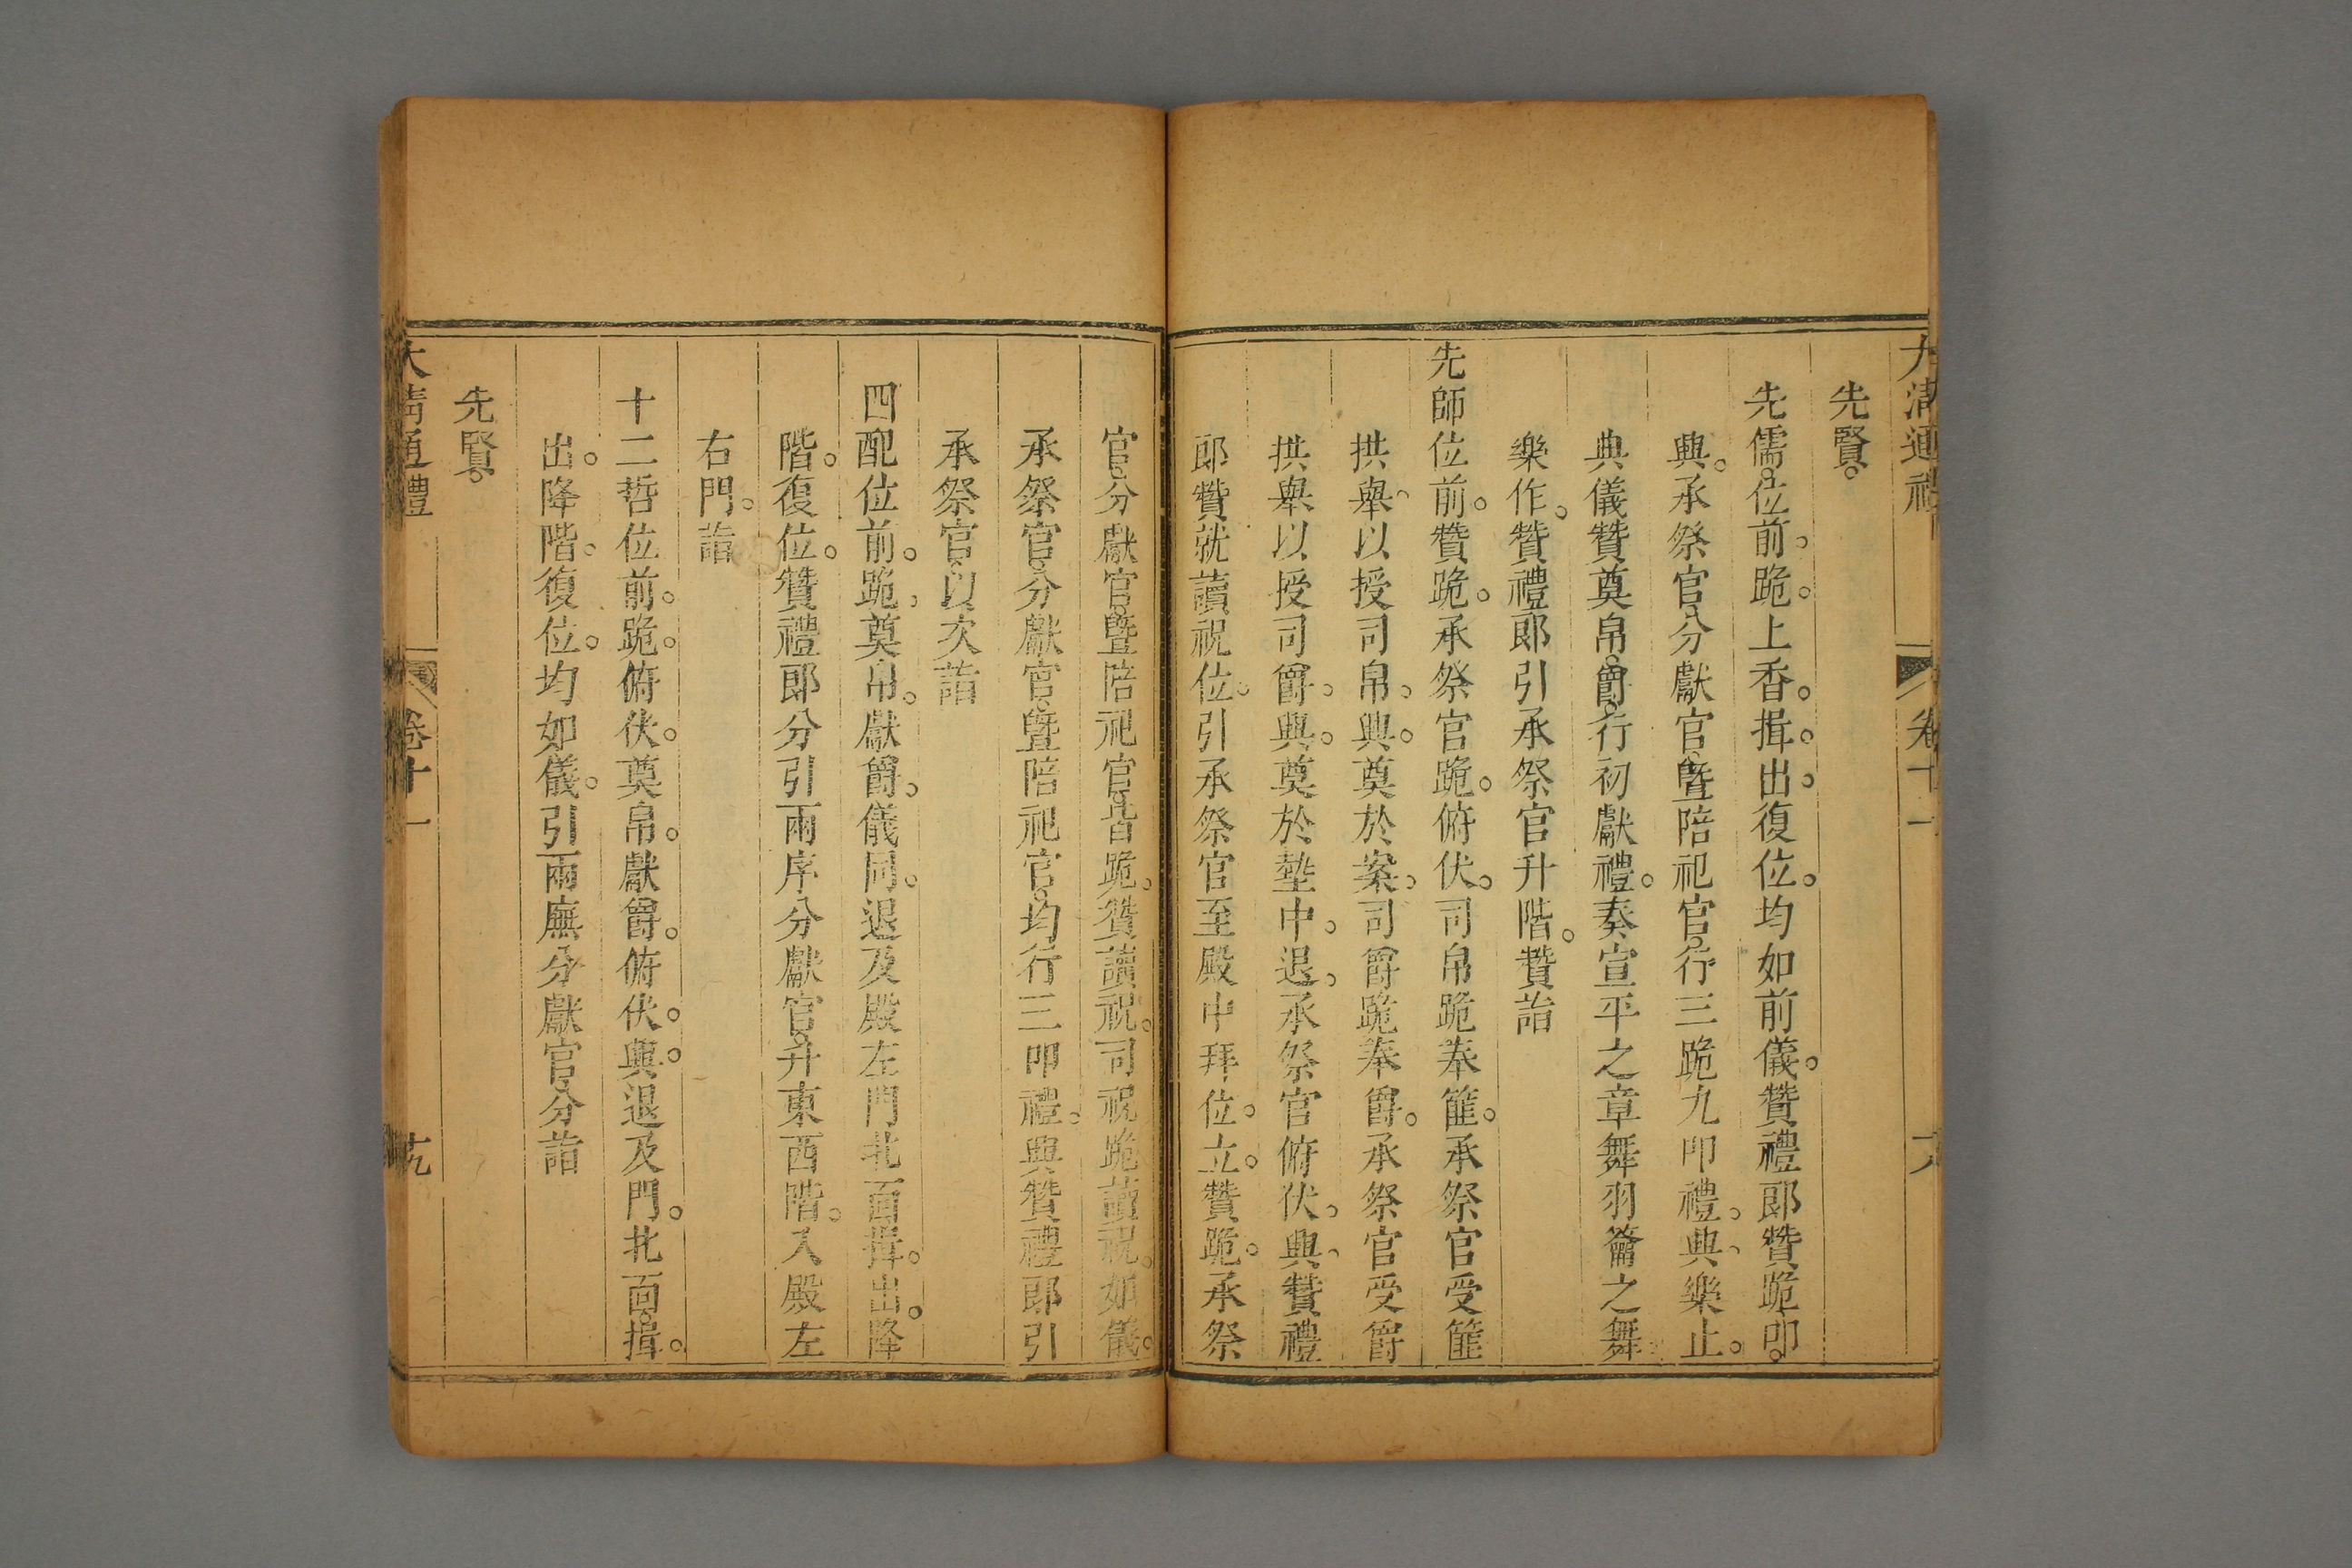 大清通禮 卷十一
先賢。
先儒。位前。跪。上香。揖。出。復位。均如前儀。贊禮郎贊跪。叩。
興。承祭官。分獻官。曁陪祀官。行三跪九叩禮。興。樂止。
典儀贊奠帛。爵。行初獻禮。奏宣平之章舞羽籥之舞
樂作。贊禮郎引承祭官升階。贊詣
先師位前。贊跪。承祭官跪。俯伏。司帛跪奉篚。承祭官受篚
拱舉。以授司帛。興。奠於案。司爵跪奉爵。承祭官受爵
拱舉以授司爵。興。奠於墊中。退。承祭官俯伏。興。贊禮
郎贊就讀祝位。引承祭官至殿中拜位。立。贊跪。承祭
官。分獻官。曁陪祀官。皆跪。贊讀祝。司祝跪讀祝。如儀。
承祭官。分獻官。曁陪祀官。均行三叩禮。興贊禮郎引
承祭官。以次詣
四配位前。跪。奠帛。獻爵。儀同。退及殿左門北面揖。出。降
階。復位。贊禮郎分引兩序分獻官。升東西階。入殿左
右門。詣
十二哲位前。跪。俯伏。奠帛。獻爵。俯伏。興。退及門。北面。揖。
出。降階。復位。均如儀。引兩廡分獻官。分詣
先賢。
大清通禮 卷十一